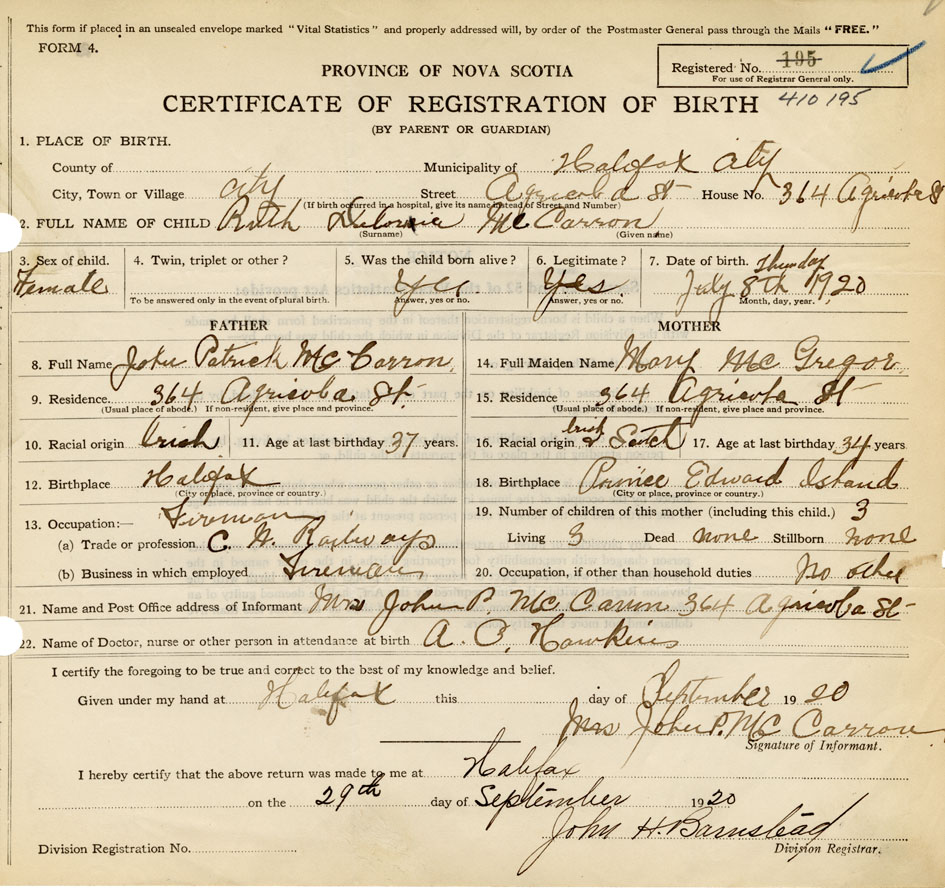 This form if placed in an unsealed envelope marked "Vital Statistics" and properly addressed will, by order of the Postmaster General pass through the Mails "FREE."
FORM 4.
Registered No. 195
For use of Registrar General only.
410 195
PROVINCE OF NOVA SCOTIA
CERTIFICATE OF REGISTRATION OF BIRTH
(BY PARENT OR GUARDIAN)
1. PLACE OF BIRTH.
County of Municipality of Halifax City
City, Town or Village City Street Agricola St House No. 364 Agricola St
(If birth occurred in a hospital, give its name instead of Street and Number)
2. FULL NAME OF CHILD Ruth McCarron
(Surname) (Given name)
3. Sex of child. Female
4. Twin, triplet or other?
To be answered only in the event of plural birth.
5. Was the child born alive? Yes.
Answer, yes or no.
6. Legitimate? Yes.
Answer, yes or no.
7. Date of birth. Thursday
July 8th 1920
Month, day, year.
FATHER
8. Full Name John Patrick McCarron
9. Residence 364 Agricola St.
(Usual place of abode.) If non-resident, give place and province.
10. Racial origin Irish 11. Age at last birthday 37 years.
12. Birthplace Halifax
(City or place, province or country.)
13. Occupation:— Fireman
(a) Trade or profession C. N. Railways
(b) Business in which employed Fireman
MOTHER
14. Full Maiden Name Mary McGregor
15. Residence 364 Agricola St
(Usual place of abode.) If non-resident, give place and province.
16. Racial origin Irish & Scotch 17. Age at last birthday 34 years
18. Birthplace Prince Edward Island
(City or place, province or country.)
19. Number of children of this mother (including this child.) 3
Living 3 Dead none Stillborn none
20. Occupation, if other than household duties No other
21. Name and Post Office address of Informant Mrs John P. McCarron 364 Agricola St
22. Name of Doctor, nurse or other person in attendance at birth A. C. Hawkins
I certify the foregoing to be true and correct to the best of my knowledge and belief.
Given under my hand at Halifax this day of September 1920
Mrs John P. McCarron
Signature of Informant.
I hereby certify that the above return was made to me at Halifax
on the 29th day of September 1920
John H. Barnstead
Division Registration No. Division Registrar.